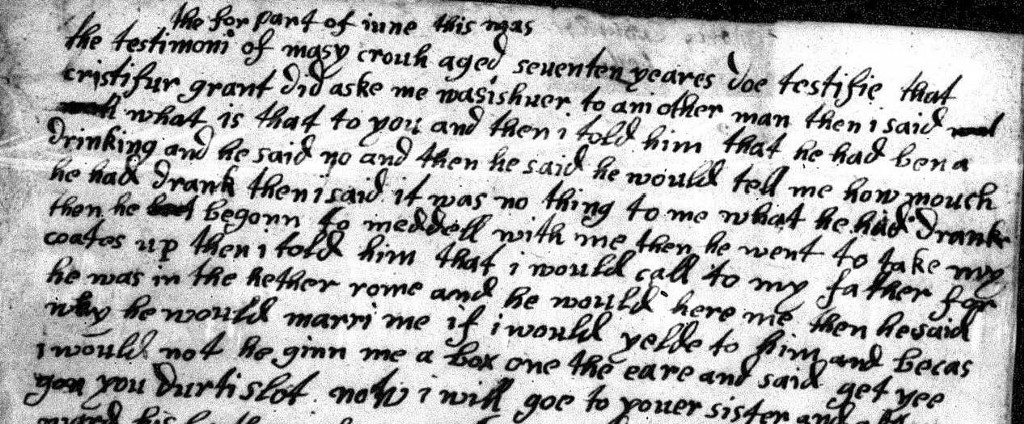 the for part of iune this was
the testimoni of masy crouh aged seventen yeares doe testifie that
cristifur grant did aske me was ishuer to ani other man then i said
what is that to you and then i told him that he had ben a
drinking and he said no and then he said he would tell me how mouch
he had drank then i said it was no thing to me what he had dranke
then he begonn to meddell with me then he went to take my
coates up then i told him that i would call to my father for
he was in the hether rome and he would here me then he said
why he would marri me if i would yelde to him and becas
i would not he ginn me a box one the eare and said get yee
gon you durti slot now i will goe to youer sister and